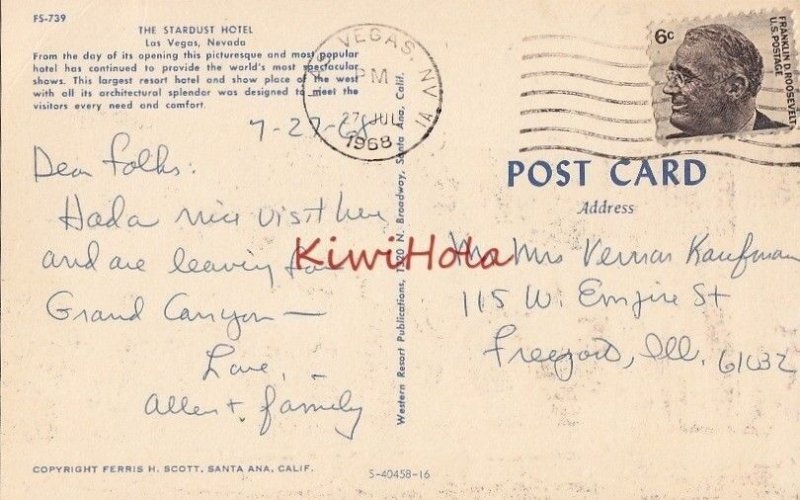 FS-739
THE STARDUST HOTEL
Las Vegas, Nevada
From the day of its opening this picturesque and most popular
hotel has continued to provide the world's most spectacular
shows. This largest resort hotel and show place of the west
with all its architectural splendor was designed to meet the
visitors every need and comfort.
LAS VEGAS, NV
PM
27 JUL
1968
1A
6c
FRANKLIN D. ROOSEVELT
U.S. POSTAGE
7-27-68
Dear Folks:
Had a nice visit here
and are leaving for
Grand Canyon —
Love, —
Allen + family
Western Resort Publications, 1320 N. Broadway, Santa Ana, Calif.
POST CARD
Address
Mr Mrs Vernas Kaufman
115 W. Empire St
Freeport, Ill. 61032
KiwiHola
COPYRIGHT FERRIS H. SCOTT, SANTA ANA, CALIF.
S-40458-16